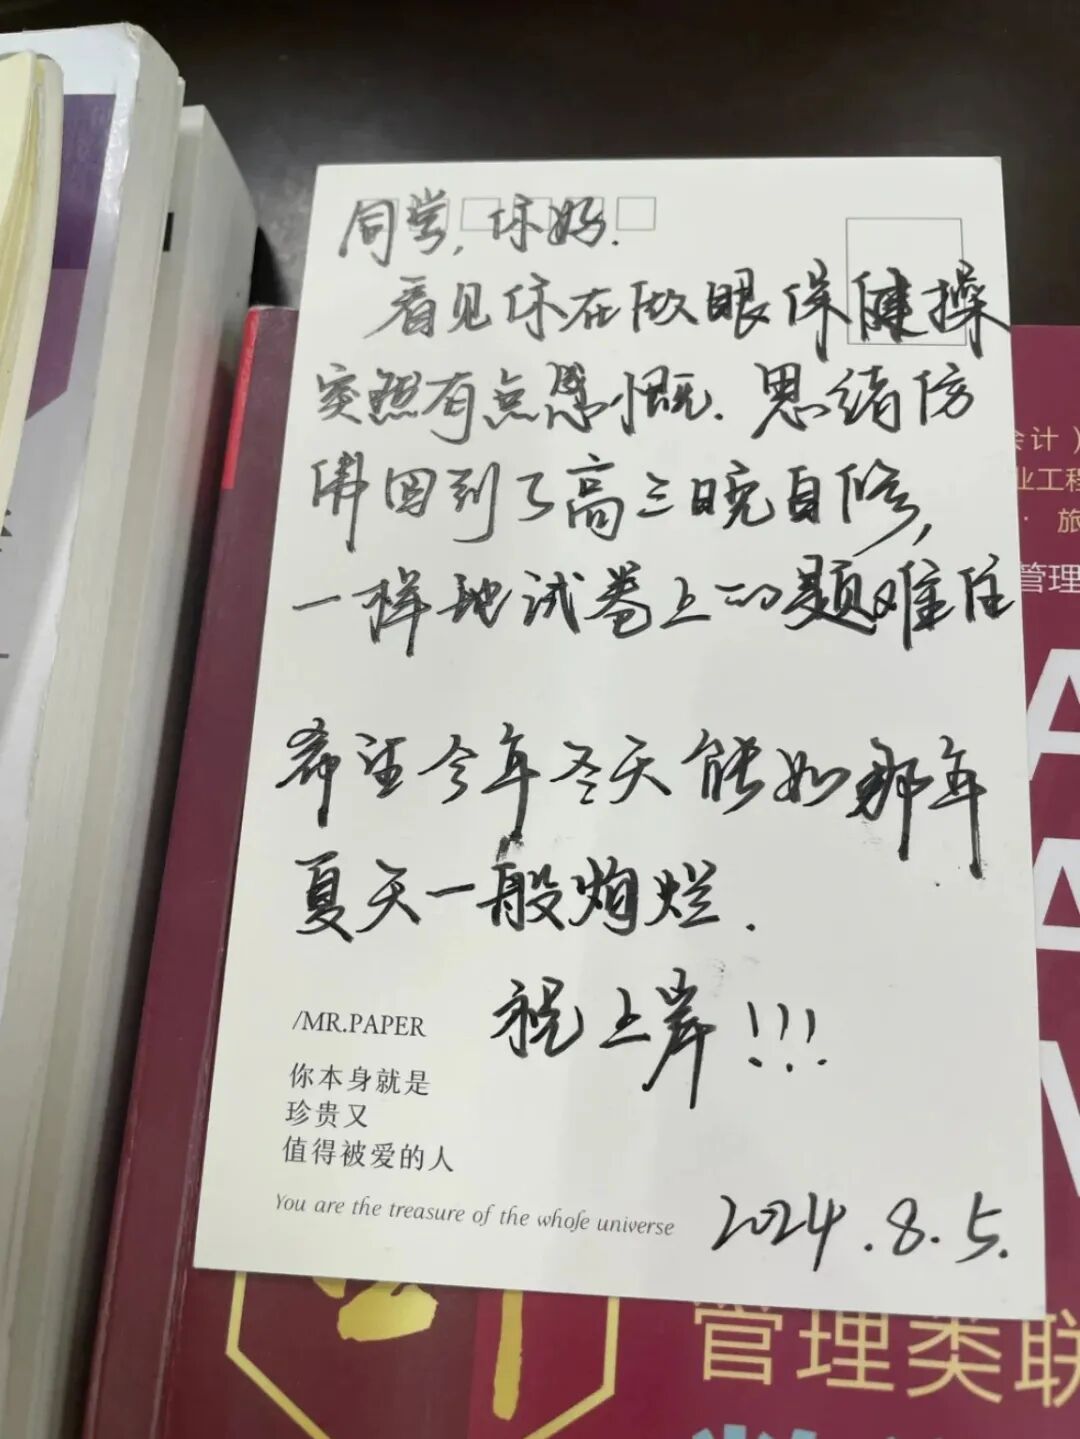 同学,你好.
看见你在做眼保健操
突然有点感慨.思绪仿
佛回到了高三晚自修,
一样地试卷上的题难住
希望今年冬天能如那年
夏天一般炯烂.
祝上岸!!!
/MR.PAPER
你本身就是
珍贵又
值得被爱的人
You are the treasure of the whole universe
2024.8.5.
会计)
业工程
· 旅
管理
A
A
管理类联